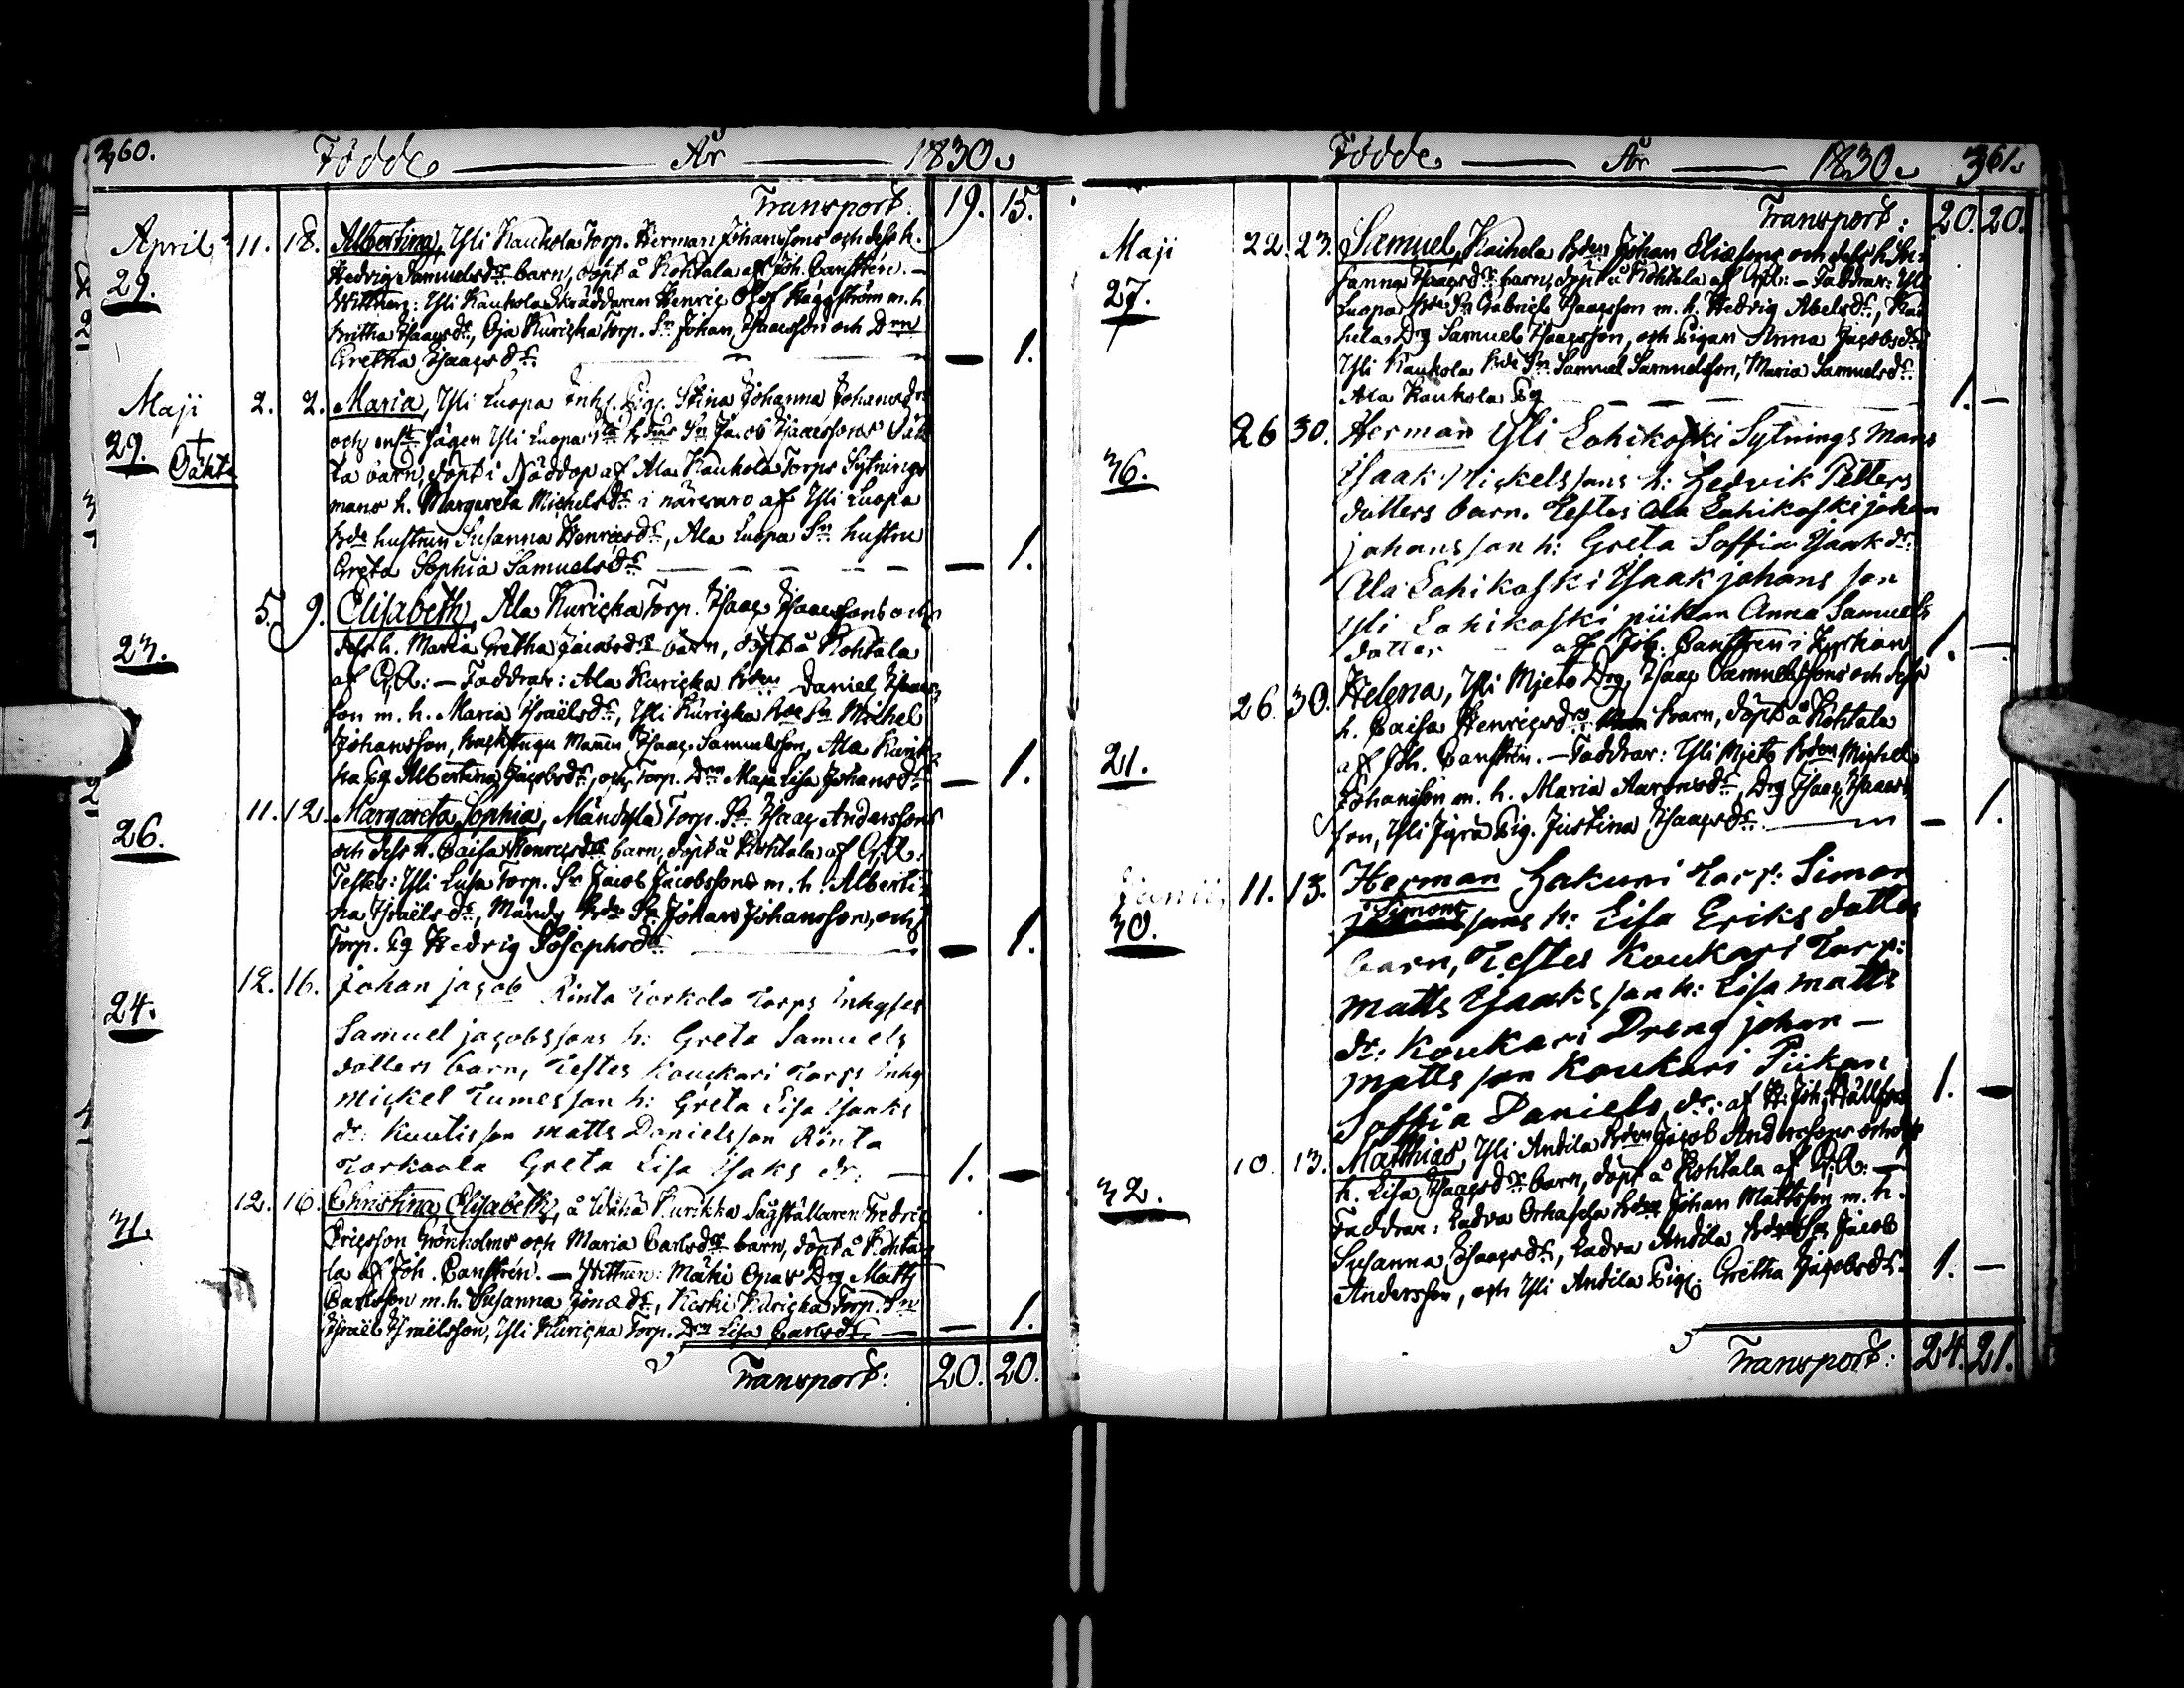 360. Födde År 1830.
Transport: 19. 15.
April 11. 18. Albertina, Yli Kaukola Torp. Herman Johanssons och dess h.
29. Hedvig Samuelsdrs barn, döpt å Kohtala af Joh. Canstrén. —
Wittnen: Yli Kaukola Skräddaren Henric Olof Häggström m. h.
Britha Isaacsdr, Oja Kuricka Torp. Sn Johan Isaacsson och Drn
Gretha Isaacsdr. — 1.
Maji 2. 2. Maria, Yli Luopa Inhs. Pig. Stina Johanna Johansdrs
29. och Yli Luopa Sn Jacob Isaacssons Oäk
Oäkta ta barn, döpt i Nöddop af Ala Kaukola Torps Sytnings
mans h. Margareta Michelsdr. i närvaro af Yli Luopa
Bde hustrun Susanna Henricsdr, Ala Luopa Sn hustru
Greta Sophia Samuelsdr. — 1.
5. 9. Elisabeth, Ala Kuricka Torp. Isaac Isaacssons och
23. dess h. Maria Gretha Jacobsdrs barn, döpt å Kohtala
af — Faddrar: Ala Kuricka Bden Daniel Isaacs
son m. h. Maria Israëlsdr, Yli Kuricka Bde Sn Michel
Johansson, Backstugu Mannen Isaac Samuelsson, Ala Kurik
ka Pg Albertina Jacobsdr, och Torp. Drn Maja Lisa Johansdr — 1.
11. 12. Margareta Sophia, Mändylä Torp. Sn Isaac Anderssons
26. och dess h. Caisa Henricsdrs barn, döpt å Kohtala af
Testes: Yli Lusa Torp. Sn Jacob Jacobsson m. h. Alberti
na Israëlsdr, Mändy Bde Sn Johan Johansson, och
Torp. Pg Hedvig Josephsdr — 1.
12. 16. Johan jacob Rinta Torkola Torps Inhyses
24. Samuel jacobssons h: Greta Samuels
dotters barn, Testes Koukari Torps Inhy
Mickel Tumesson h: Greta Lisa Isaks
dr: Kuutisson Matts Danielsson Rinta
Torkoola Greta Lisa Isaks dr. 1. —
12. 16. Christina Elisabeth, å Wähä Kurikka Sågställaren Fredric
31. Ericsson Grönholms och Maria Carlsdrs barn, döpt å Kohta
la af Joh. Canstrén. — Wittnen: Mäki Opas Drg Matts
Carlsson m. h. Susanna Jonædr, Keski Kuricka Torp. Sn
Israël Israëlsson, Yli Kuricka Torp. Drn Lisa Carlsdr. — 1.
Transport: 20. 20.
Födde År 1830. 361.
Transport: 20. 20.
Maji 22. 23. Samuel, Kaihela Bden Johan Eliæsons och dess h. Su
27. sanna Isaacsdrs barn, döpt å Kohtala af — Faddrar: Yli
Luopa Bde Sn Gabriel Isaacsson m. h. Hedvig Abelsdr, Kai
hela Drg Samuel Isaacsson, och Pigan Anna Jacobsdr,
Yli Kaukola Bde Sn Samuel Samuelsson, Maria Samuelsdr.
Ala Kaukola Pg 1. —
26 30. Herman Yli Lohikoski Sytnings Mans
36. Isaak Mickelssons h: Hedvik Petters
dotters barn. Testes Ala Lohikoski johan
johansson h: Greta Soffia Isaak dr:
Ala Lohikoski Isaak johansson
Yli Lohikoski piikan Anna Samuels
dotter af Joh: Canstrén i Kyrkan 1. —
26. 30. Helena, Yli Mjeto Drg Isaac Samuelssons och dess
21. h. Caisa Henricsdrs barn, döpt å Kohtala
af Joh. Canstrén. — Faddrar: Yli Mjeto Bden Michel
Johansson m. h. Maria Aaronsdr, Drg Isaac Isaacs
son, Yli Jyrä Pig. Justina Isaacsdr. — 1.
Junii 11. 13. Herman Hakuni Torp: Simon
30. Simonssons h: Lisa Eriks dotters
barn, Testes Koukari Torp:
Matts Isaaksson h: Lisa Matts
dr: Koukari Dreng johan —
Mattsson Koukari Piikan
Soffia Daniels dr: af H. Joh: 1. —
10. 13. Matthias, Yli Antila Bden Jacob Anderssons och dess
32. h. Lisa Isaacsdrs barn, döpt å Kohtala af —
Faddrar: Ladva Bden Johan Mattsson m. h.
Susanna Isaacsdr, Ladva Antila Bde Sn Jacob
Andersson, och Yli Antila Pig: Gretha Jacobsdr. 1. —
Transport: 24. 21.